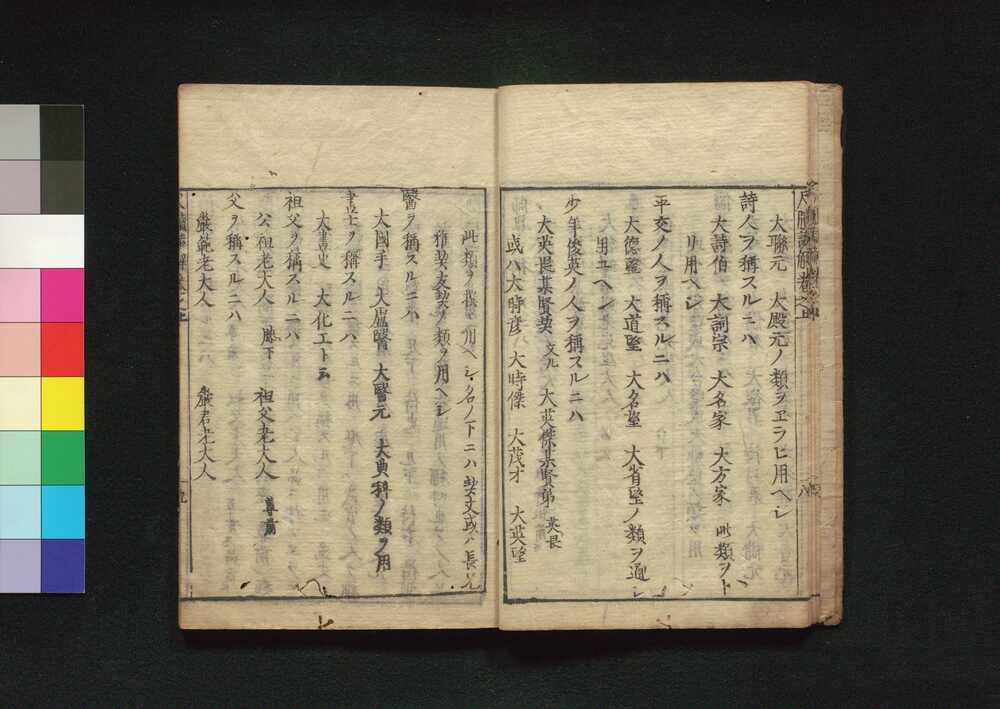 大聯元 大殿元ノ類ヲヱラヒ用ヘシ
詩人ヲ稱スルニハ
大詩伯 大詞宗 大名家 大方家 此類ヲト
リ用ヘシ
平交ノ人ヲ稱スルニハ
大德望 大道望 大名望 大省望ノ類ヲ通シ
用ユヘシ
少年俊英ノ人ヲ稱スルニハ
大英 賢契 文几 大英傑某賢弟
或ハ大時彦 大時傑 大茂才 大英望
此類ヲ 用ヘシ名ノ下ニハ契丈或ハ長兄
雅契友契ノ類ヲ用ヘシ
醫ヲ稱スルニハ
大國手 大盧醫 大醫元 大典科ノ類ヲ用
畫士ヲ稱スルニハ
大畫史 大化工ト云
祖父ヲ稱スルニハ
公祖老大人 膝下 祖父老大人 尊前
父ヲ稱スルニハ
嚴範老大人 嚴君老大人